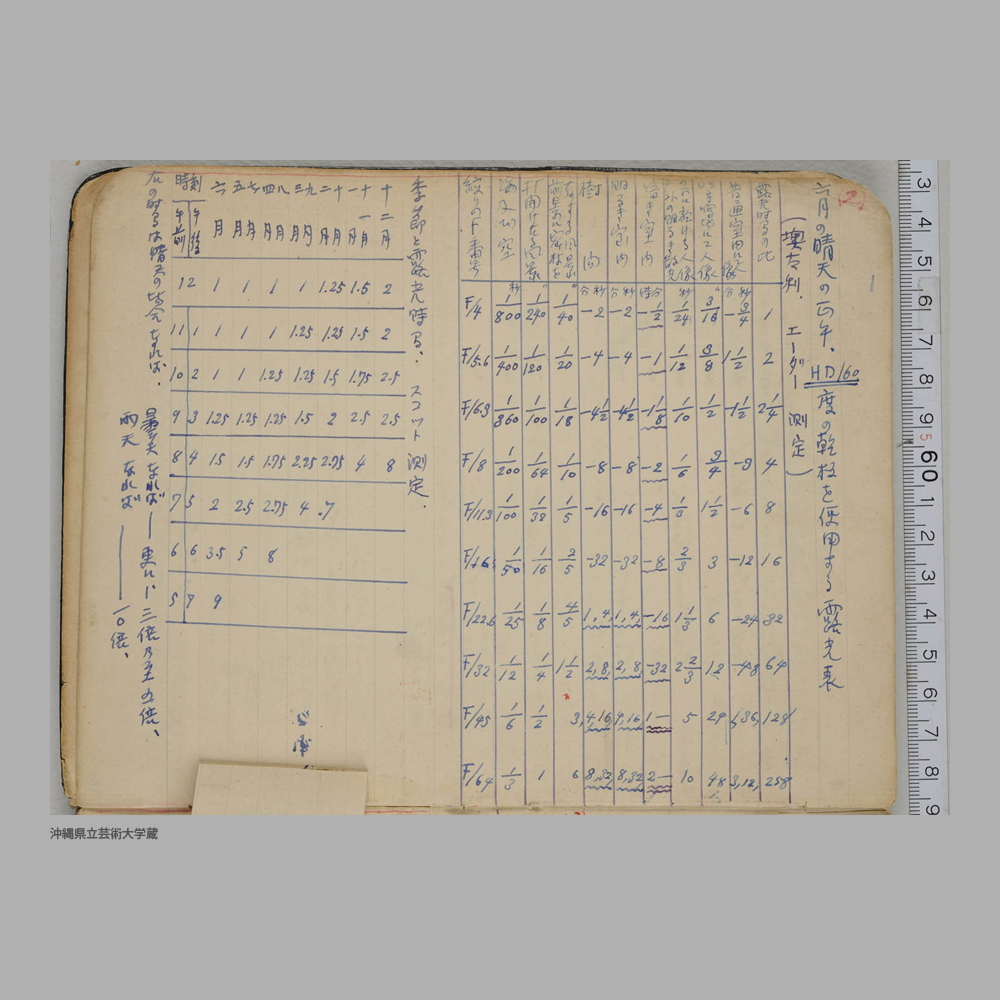 六月の晴天の正午、HD160度の乾板を使用する露光表
(墺太利、エーダー測定)
露光時間の比 1 2 2¼ 4 8 16 32 64 128 258
普通室内にて人像 分秒 -3/4 1½ -1½ -3 -6 -12 -24 -48 1,36, 3,12,
人像 3/16 3/8 1/2 3/4 1½ 3 6 12 24 48
秒 1/24 1/12 1/10 1/6 1/3 2/3 1⅓ 2⅔ 5 10
暗キ室内 時分 -½ -1 -1⅛ -2 -4 -8 -16 -32 1- 2-
明るき室内 分秒 -2 -4 -4½ -8 -16 -32 1,4, 2,8, 4,16, 8,32
樹間 分秒 -2 -4 -4½ -8 -16 -32 1,4, 2,8, 4,16 8,32
1/40 1/20 1/18 1/10 1/5 2/5 4/5 1½ 3, 6
開けたる風景 1/240 1/120 1/100 1/64 1/32 1/16 1/8 1/4 1/2 1
海及び空 秒 1/800 1/400 1/360 1/200 1/100 1/50 1/25 1/12 1/6 1/3
絞りのF番号 F/4 F/5.6 F/6.3 F/8 F/11.3 F/16 F/22.6 F/32 F/45 F/64
季節と露光時間、スコット測定、
十二月 2 2 2.5 2.5 8
十一月 1.5 1.5 1.75 2.5 4
二月十月 1.25 1.25 1.5 2 2.75 .7
三月九月 1 1.25 1.25 1.5 2.25 4
四月八月 1 1 1.25 1.25 1.75 2.75 8
五月七月 1 1 1 1.25 1.5 2.5 5
六月 1 1 1 1.25 1.5 2 3.5 9
時刻 午後 12 1 2 3 4 5 6 7
午前 11 10 9 8 7 6 5
右の時間は晴天の場合なれば、
曇天なれば—更に 三倍乃至五倍、
雨天なれば——一〇倍、
3 4 5 6 7 8 9 5 60 1 2 3 4 5 6 7 8 9
沖縄県立芸術大学蔵